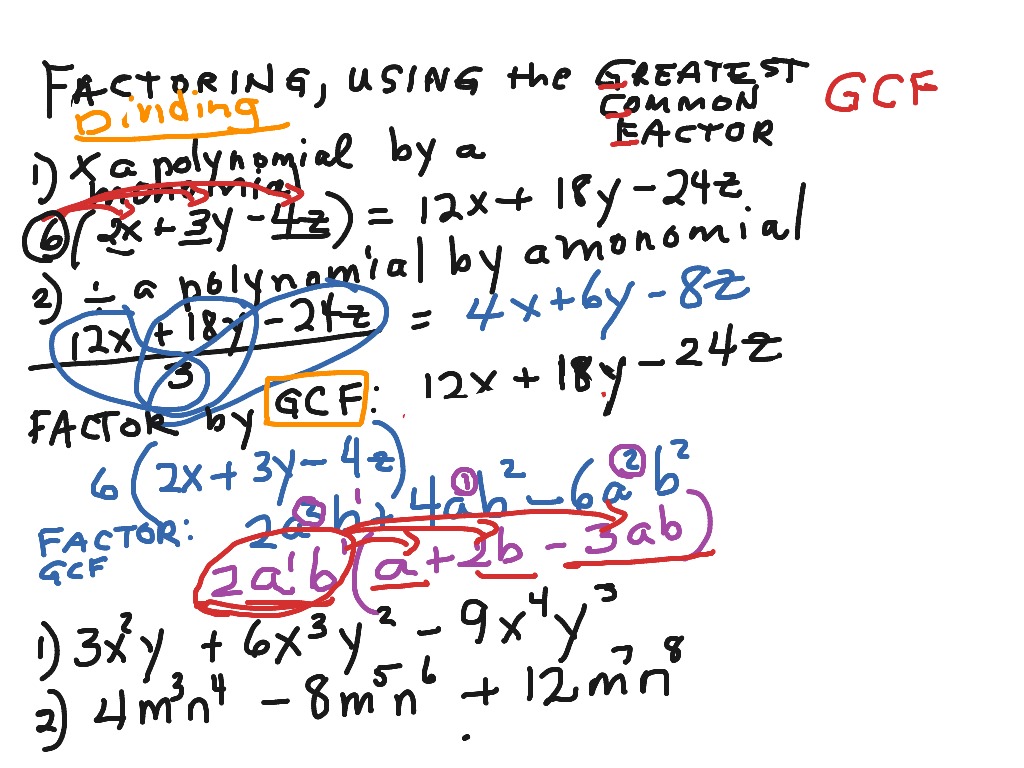 FACTORING, USING the GREATEST COMMON FACTOR GCF
Dividing
1) x a polynomial by a monomial
6(2x + 3y - 4z) = 12x + 18y - 24z
2) ÷ a polynomial by a monomial
12x + 18y - 24z / 3 = 4x + 6y - 8z
FACTOR by GCF: 12x + 18y - 24z
6(2x + 3y - 4z)
FACTOR: 2a²b¹ + 4a¹b² - 6a²b²
GCF 2a¹b¹(a + 2b - 3ab)
1) 3x²y + 6x³y² - 9x⁴y³
2) 4m³n⁴ - 8m⁵n⁶ + 12m⁷n⁸